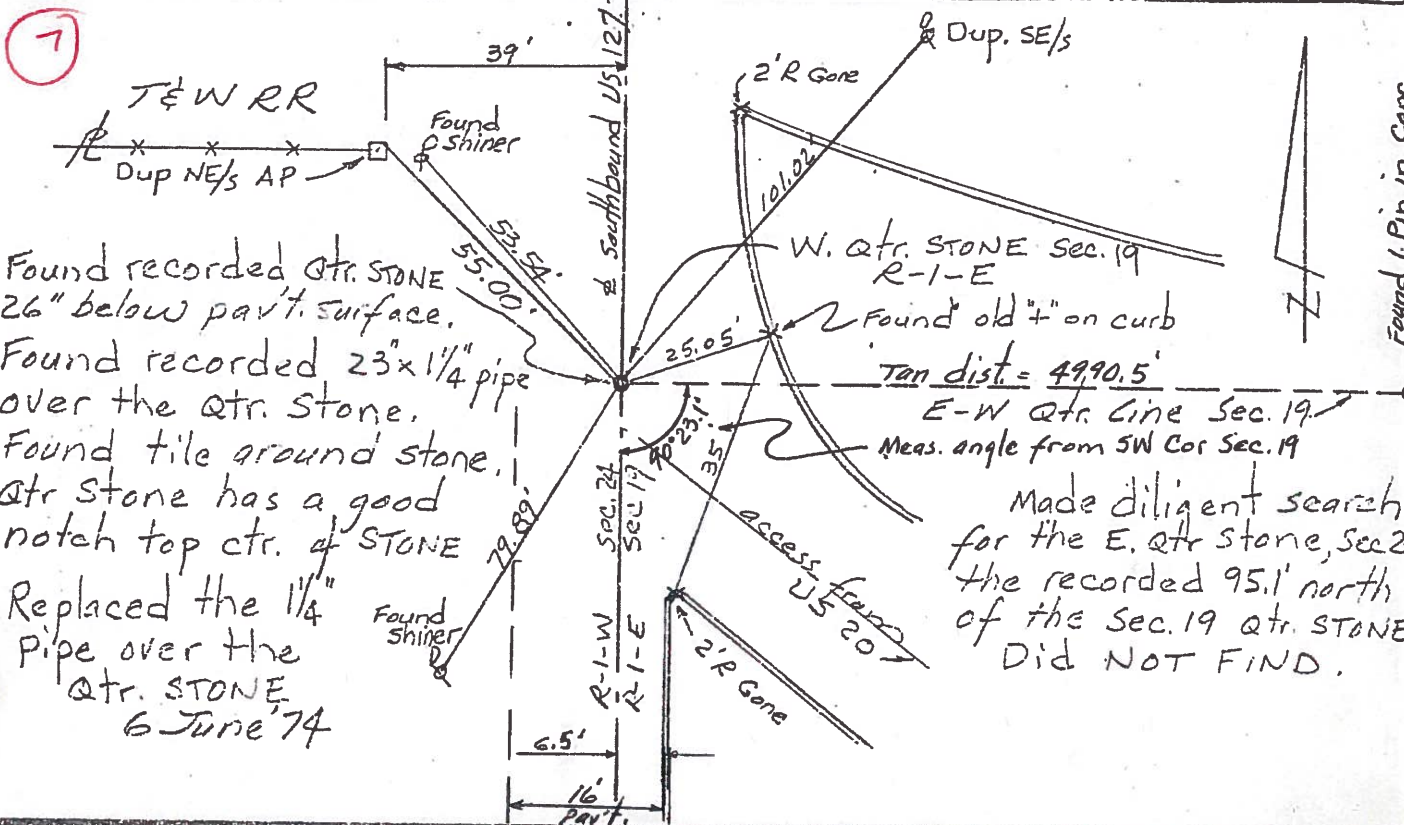 7
39'
T&W RR
Dup NE/s AP
Found
Shiner
53.54'
55.00'
℄ Southbound US 127
2'R Gone
Dup. SE/s
101.02'
W. Qtr. STONE Sec. 19
R-1-E
Found old "+" on curb
25.05'
Tan dist. = 4990.5'
E-W Qtr. Line Sec. 19
90°23.1'
Meas. angle from SW Cor Sec. 19
35'
Found recorded Qtr. STONE
26" below pav't. surface.
Found recorded 23" x 1¼" pipe
over the Qtr. Stone.
Found tile around stone.
Qtr Stone has a good
notch top ctr. of STONE
Replaced the 1¼"
pipe over the
Qtr. STONE
6 June '74
79.89'
Found
Shiner
Sec. 24
Sec 19
R-1-W
R-1-E
access from
US 20
2'R Gone
Made diligent search
for the E. Qtr Stone, Sec 2
the recorded 95.1' north
of the Sec. 19 Qtr. STONE
Did NOT FIND.
6.5'
16'
Pav't.
N
Found I. Pin in Conc